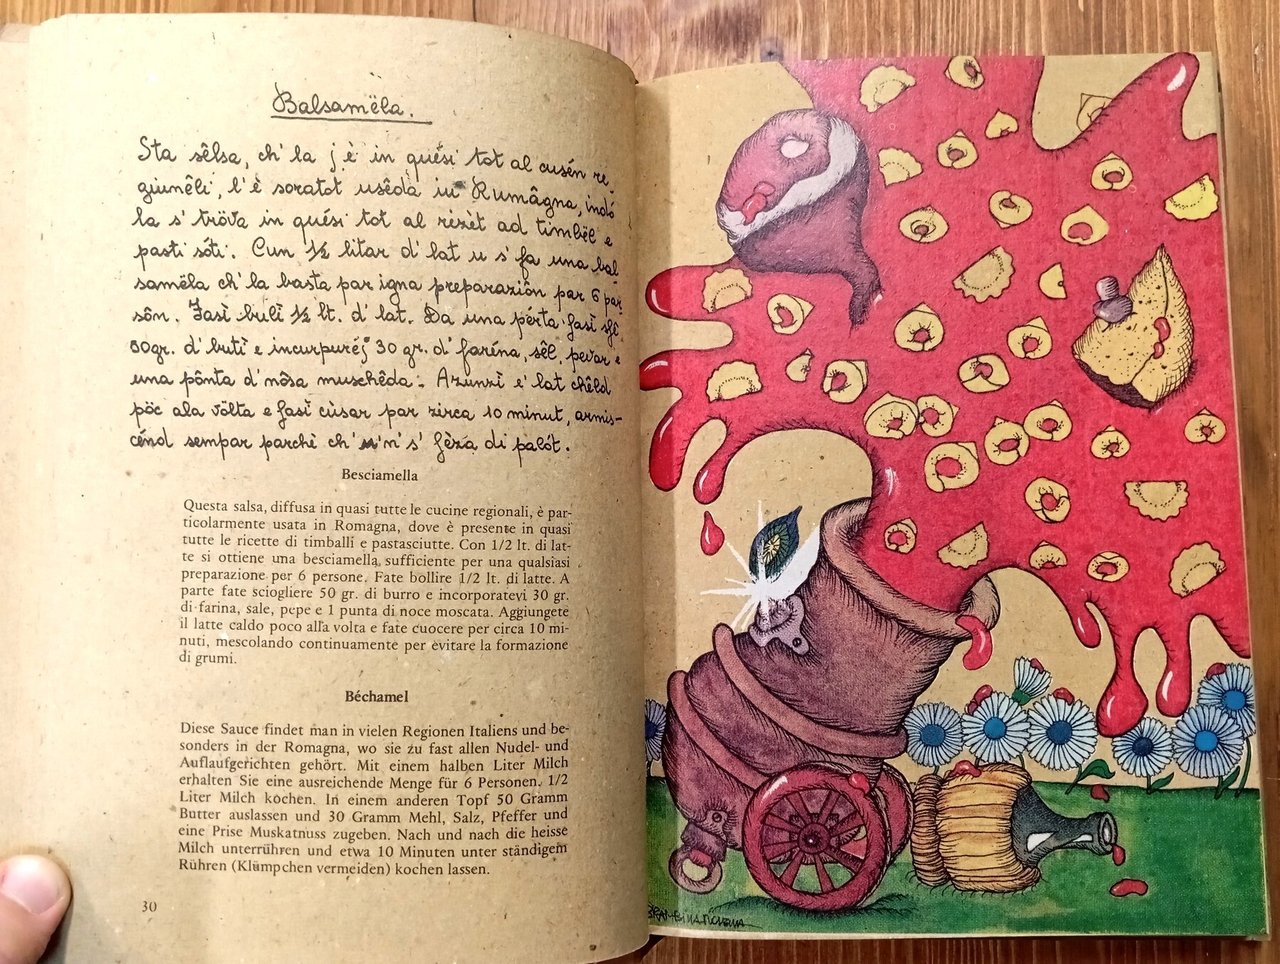 Balsamëla.
Sta sêlsa, ch' la j è in quési tot al cusén re-
giunêli, l'è soratot usêda in Rumâgna, indó
la s' tröva in quési tot al rizèt ad timbël e
pasti sóti. Cun ½ litar d' lat u s' fa una bal
samëla ch' la basta par igna preparaziôn par 6 par
sôn. Fasì bulì ½ lt. d' lat. Da una pérta fasì sfê
50gr. d' butì e incurpuréj 30 gr. d' faréna, sêl, pevar e
una pônta d' nôsa muschêda. Azunzì e' lat chêld
pöc ala völta e fasì cùsar par zirca 10 minut, armis-
cénd sempar parchè ch' u n' s' fèza di palót.
Besciamella
Questa salsa, diffusa in quasi tutte le cucine regionali, è par-
ticolarmente usata in Romagna, dove è presente in quasi
tutte le ricette di timballi e pastasciutte. Con 1/2 lt. di lat-
te si ottiene una besciamella sufficiente per una qualsiasi
preparazione per 6 persone. Fate bollire 1/2 lt. di latte. A
parte fate sciogliere 50 gr. di burro e incorporatevi 30 gr.
di farina, sale, pepe e 1 punta di noce moscata. Aggiungete
il latte caldo poco alla volta e fate cuocere per circa 10 mi-
nuti, mescolando continuamente per evitare la formazione
di grumi.
Béchamel
Diese Sauce findet man in vielen Regionen Italiens und be-
sonders in der Romagna, wo sie zu fast allen Nudel- und
Auflaufgerichten gehört. Mit einem halben Liter Milch
erhalten Sie eine ausreichende Menge für 6 Personen. 1/2
Liter Milch kochen. In einem anderen Topf 50 Gramm
Butter auslassen und 30 Gramm Mehl, Salz, Pfeffer und
eine Prise Muskatnuss zugeben. Nach und nach die heisse
Milch unterrühren und etwa 10 Minuten unter ständigem
Rühren (Klümpchen vermeiden) kochen lassen.
30